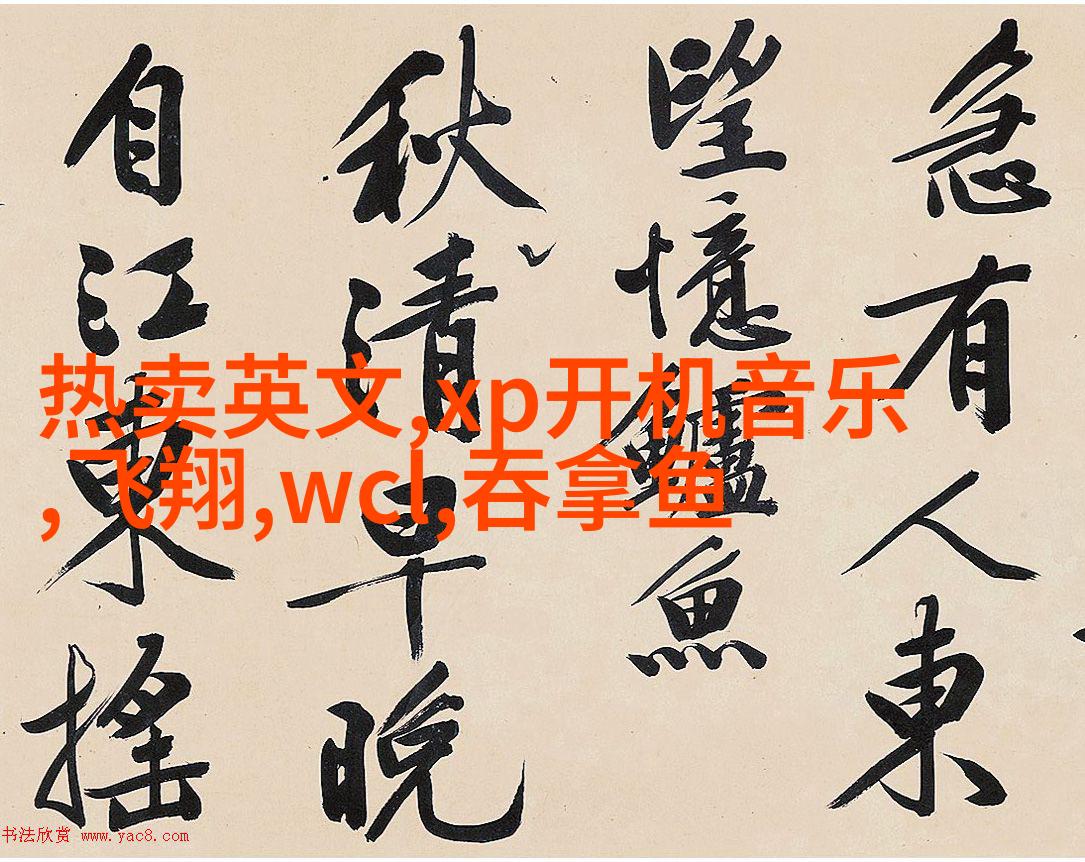 急有人東
望憶鱸魚
秋清早晚
自江東搖
热卖英文,xp开机音乐
,飞翔,wcl,吞拿鱼
书法欣赏 www.yac8.com